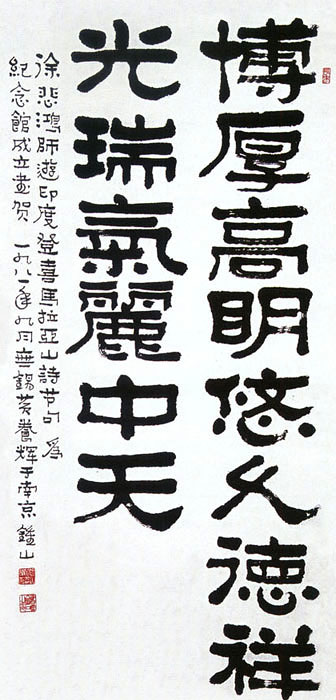 博厚高明悠久德祥
光瑞氣麗中天
徐悲鴻師遊印度登喜馬拉亞山詩句 為
紀念館成立畫贺 一九八一年九月無錫黄養辉于南京鍾山